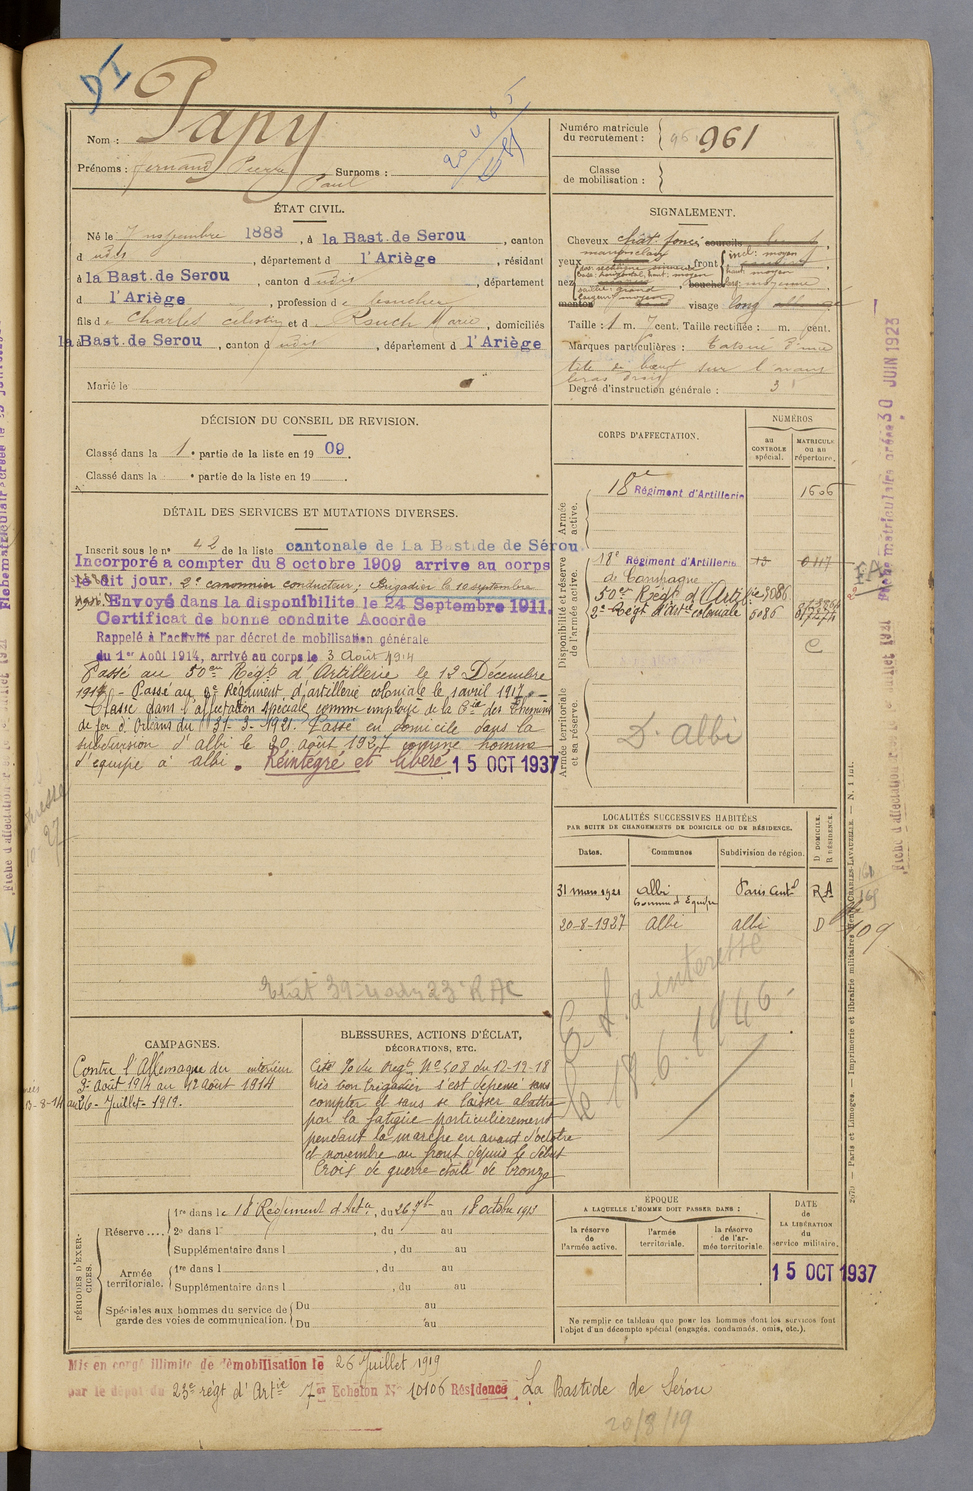 DI
Nom : Papy
Prénoms : Fernand Pierre Paul Surnoms :
Numéro matricule du recrutement : 961 961
Classe de mobilisation :
ÉTAT CIVIL.
Né le 7 novembre 1888, à la Bast. de Serou, canton
d udit, département d l'Ariège, résidant
à la Bast. de Serou, canton d udit, département
d l'Ariège, profession de boucher
fils de Charles Celestin et d Rouch Marie, domiciliés
à la Bast. de Serou, canton d udit, département d l'Ariège
Marié le
SIGNALEMENT.
Cheveux chât. foncé sourcils
yeux marron clair, front incl: moyen haut: moyen
nez dos: rectiligne base: horizontal, haut: moyen saillie: grand largeur moyen bouche larg: moyenne
menton visage long
Taille : 1 m. 7 cent. Taille rectifiée : m. cent.
Marques particulières : Tatoué d'une
tête de bœuf sur l'avant
bras droit
Degré d'instruction générale : 3
DÉCISION DU CONSEIL DE REVISION.
Classé dans la 1e partie de la liste en 1909.
Classé dans la e partie de la liste en 19 .
CORPS D'AFFECTATION.
NUMÉROS
au CONTROLE spécial.
MATRICULE ou au répertoire.
Armée active.
18e Régiment d'Artillerie 1606
Disponibilité et réserve de l'armée active.
18e Régiment d'Artillerie
de Campagne
50me Régt d'Artie 5086
2e Régt d'Artie coloniale 5086
Armée territoriale et sa réserve.
D. albi
DÉTAIL DES SERVICES ET MUTATIONS DIVERSES.
Inscrit sous le n° 42 de la liste cantonale de La Bastide de Sérou
Incorporé a compter du 8 octobre 1909 arrive au corps
le dit jour, 2e canonnier conducteur; Brigadier le 10 septembre
Envoyé dans la disponibilite le 24 Septembre 1911.
Certificat de bonne conduite Accorde
Rappelé à l'activité par décret de mobilisation générale
du 1er Août 1914, arrivé au corps le 3 Août 1914
Passé au 50me Régt d'Artillerie le 12 Décembre
1914 - Passé au 2e Régiment d'artillerie coloniale le 1 avril 1917.
Classé dans l'affectation spéciale comme employé de la Cie des Chemins
de fer d'Orléans du 31-3-1921. Passé en domicile dans la
subdivision d'albi le 20 août 1927 comme homme
d'équipe à albi. Réintégré et libéré 15 OCT 1937
LOCALITÉS SUCCESSIVES HABITÉES
PAR SUITE DE CHANGEMENTS DE DOMICILE OU DE RÉSIDENCE.
Dates. Communes Subdivision de région. D DOMICILE. R RÉSIDENCE.
31 mars 1921 albi homme d'Equipe Paris Centl RA
20-8-1927 albi albi D
109
Etat 39 23e RAC
à interessé
le 18.6.1946
CAMPAGNES.
Contre l'Allemagne du intérieur
3 août 1914 au 12 août 1914
13-8-14 au 26-Juillet-1919.
BLESSURES, ACTIONS D'ÉCLAT,
DÉCORATIONS, ETC.
Cité % du Régt N° 508 du 12-12-18
très bon brigadier s'est dépensé sans
compter et sans se laisser abattre
par la fatigue particulièrement
pendant la marche en avant d'octobre
et novembre au front depuis le début
Croix de guerre étoile de bronze
PÉRIODES D'EXERCICES.
Réserve .... 1re dans le 18 Régiment d'Artie, du 26 7bre au 18 octobre 1913
2e dans l , du au
Supplémentaire dans l , du au
Armée territoriale. 1re dans l , du au
Supplémentaire dans l , du au
Spéciales aux hommes du service de garde des voies de communication. Du au
Du au
ÉPOQUE
A LAQUELLE L'HOMME DOIT PASSER DANS :
la réserve de l'armée active.
l'armée territoriale.
la réserve de l'armée territoriale.
DATE de LA LIBÉRATION du service militaire.
15 OCT 1937
Ne remplir ce tableau que pour les hommes dont les services font
l'objet d'un décompte spécial (engagés, condamnés, omis, etc.).
Mis en congé illimité de démobilisation le 26 Juillet 1919
par le dépot du 23e régt d'Artie 7er Echelon N° 10106 Résidence La Bastide de Sérou
20/8/19
Fiche matriculaire créée 30 JUIN 1923
2579 — Paris et Limoges. — Imprimerie et librairie militaires Henri CHARLES-LAVAUZELLE. — N. 1 int.